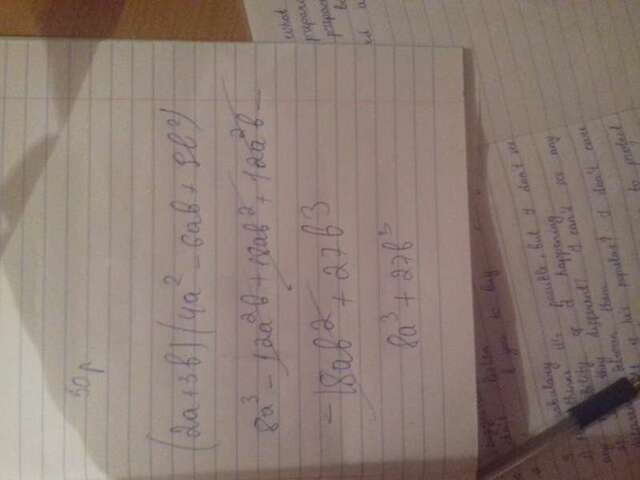 50р
(2a+3b)(4a² - 6ab + 9b²)
8a³ - 12a²b + 18ab² + 12a²b -
- 18ab² + 27b³
8a³ + 27b³
what
prepare
you to buy
vocabulary
think it's possible, but I don't see
any of it happening
they different? I can't see any
between them
if he's popular? I don't care
to protect